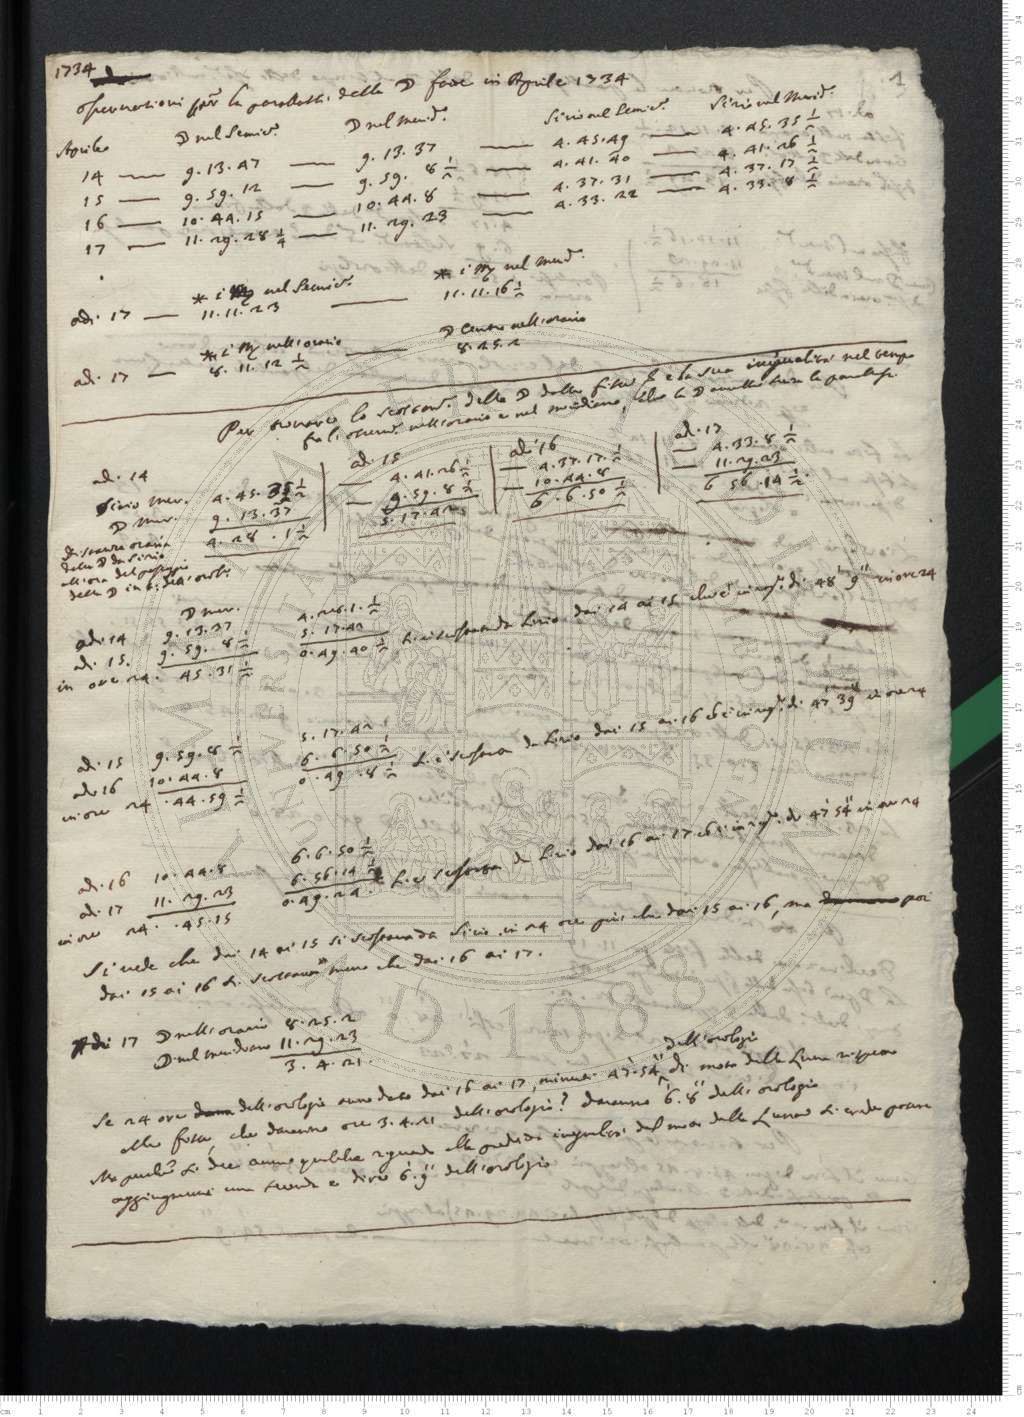 1734
1
Osservazioni per la parallasse della ☽ fatte in Aprile 1734
Aprile ☽ nel Semic.° ☽ nel merid.° Sirio nel Semic.° Sirio nel Merid.°
14 — 9. 13. 47 — 9. 13. 37 — 4. 45. 49 — 4. 45. 35 1/2
15 — 9. 59. 12 — 9. 59. 8 1/2 — 4. 41. 40 — 4. 41. 26 1/2
16 — 10. 44. 15 — 10. 44. 8 — 4. 37. 31 — 4. 37. 17 1/2
17 — 11. 29. 28 1/4 — 11. 29. 23 — 4. 33. 22 — 4. 33. 8 1/2
* i ♍ nel Semic.° * i ♍ nel merid.°
adi 17 — 11. 11. 23 — 11. 11. 16 1/2
* i ♍ nell'orario ☽ Centro nell'orario
adi 17 — 8. 11. 12 1/2 — 8. 25. 2
Per trovare lo scostam.° della ☽ dalle fisse e la sua inegualità nel tempo
fra li osserv.i nell'orario e nel meridiano, la ☽ senza la parallasse
adi 14 adi 15 adi 16 adi 17
Sirio mer. 4. 45. 35 1/2 — 4. 41. 26 1/2 — 4. 37. 17 1/2 — 4. 33. 8 1/2
☽ mer. 9. 13. 37 — 9. 59. 8 1/2 — 10. 44. 8 — 11. 29. 23
distanza oraria 4. 28. 1 1/2 5. 17. 42 6. 6. 50 1/2 6. 56. 14 1/2
della ☽ da Sirio
all'ora del passaggio
della ☽ in t. dell'orol.°
☽ mer.
adi 14 9. 13. 37 4. 28. 1 1/2
adi 15. 9. 59. 8 1/2 5. 17. 42
in ore 24. 45. 31 1/2 0. 49. 40 1/2 si è scostata da Sirio dai 14 ai 15 che è in rag.e di 48' 9'' in ore 24
adi 15 9. 59. 8 1/2 5. 17. 42
adi 16 10. 44. 8 6. 6. 50 1/2
in ore 24 . 44. 59 1/2 0. 49. 8 1/2 si è scostata da Sirio dai 15 ai 16 che è in rag.e di 47' 39'' in ore 24
adi 16 10. 44. 8 6. 6. 50 1/2
adi 17 11. 29. 23 6. 56. 14 1/2
in ore 24. . 45. 15 0. 49. 24. si è scostata da Sirio dai 16 ai 17 che è in rag.e di 47' 54'' in ore 24
Si vede che dai 14 ai 15 si scostava da Sirio in 24 ore più che dai 15 ai 16, ma poi
dai 15 ai 16 si scostava meno che dai 16 ai 17.
Adi 17 ☽ nell'orario 8. 25. 2
☽ nel meridiano 11. 29. 23
3. 4. 21.
dell'orologio
Se 24 ore dell'orologio anno dato dai 16 ai 17, minuti 47' 54'' di moto della Luna rispetto
alle fisse, che daranno ore 3. 4. 21 dell'orologio? daranno 6'. 8'' dell'orologio
Ma perchè si dee avere qualche riguardo alla predetta inegualità del moto della Luna si crede potere
aggiugnervi una seconda e dire 6'. 9'' dell'orologio